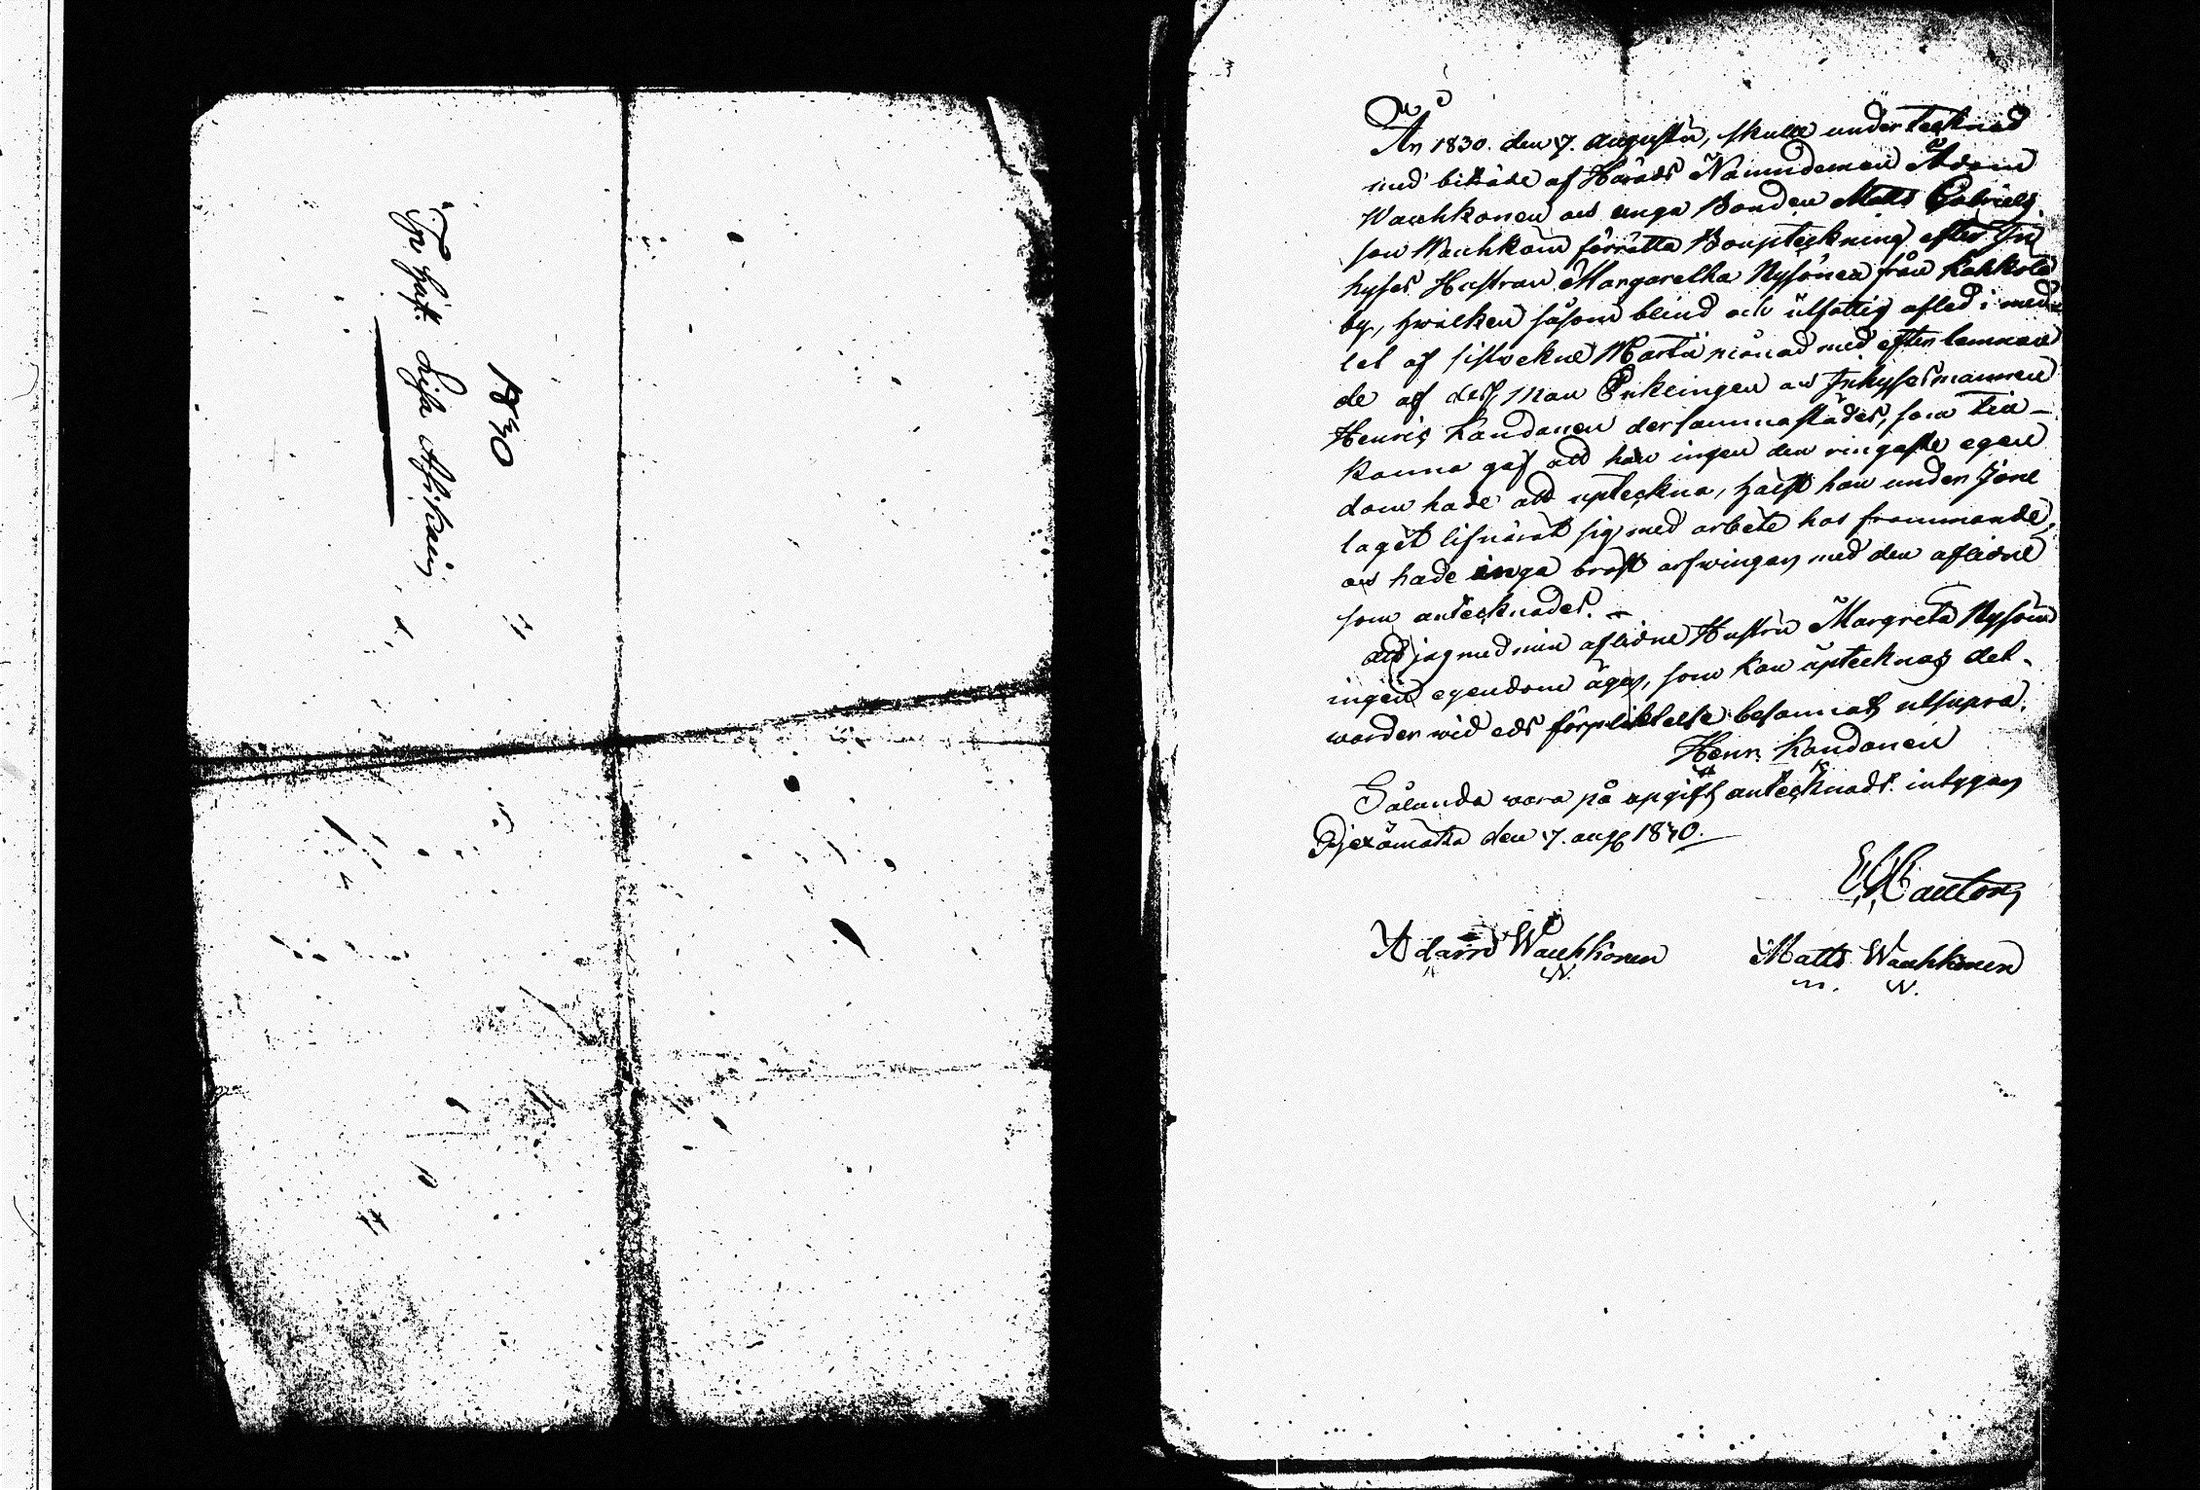 1830
Inh. hust. Lisa Asikain
År 1830. den 7. Augusti, skulle undertecknad
med biträde af Härads Nämndeman Adam
Wauhkonen och unga Bonden Matts Gabriels
son Wauhkoin förrätta Bouptekning efter In
hyses Hustrun Margaretha Nysönen från Kahkola
by, hwilken såsom blind och utfattig afled i med
let af sistwekne Martii månad med efterlemnan
de af dess Man Enklingen och Inhysesmannen
Henric Kandonen dersammastädes, som tin-
kanna gaf att han ingen den ringaste egen
dom hade att upteckna, hälst han under Jone
laget lifnärat sig med arbete hos främmande,
och hade inga bröst arfwingar med den aflidne
som antecknades. -
Att jag med min aflidne Hustru Margreta Nysöin
ingen egendom äger, som kan uptecknas det
warder wid eds förpliktelse besannat utsupra.
Henr. Kandonen
Sålunda wara på upgift antecknadt intygar
den 7. aug 1830.
Cautor
Adam Wauhkonen Matts Wauhkonen